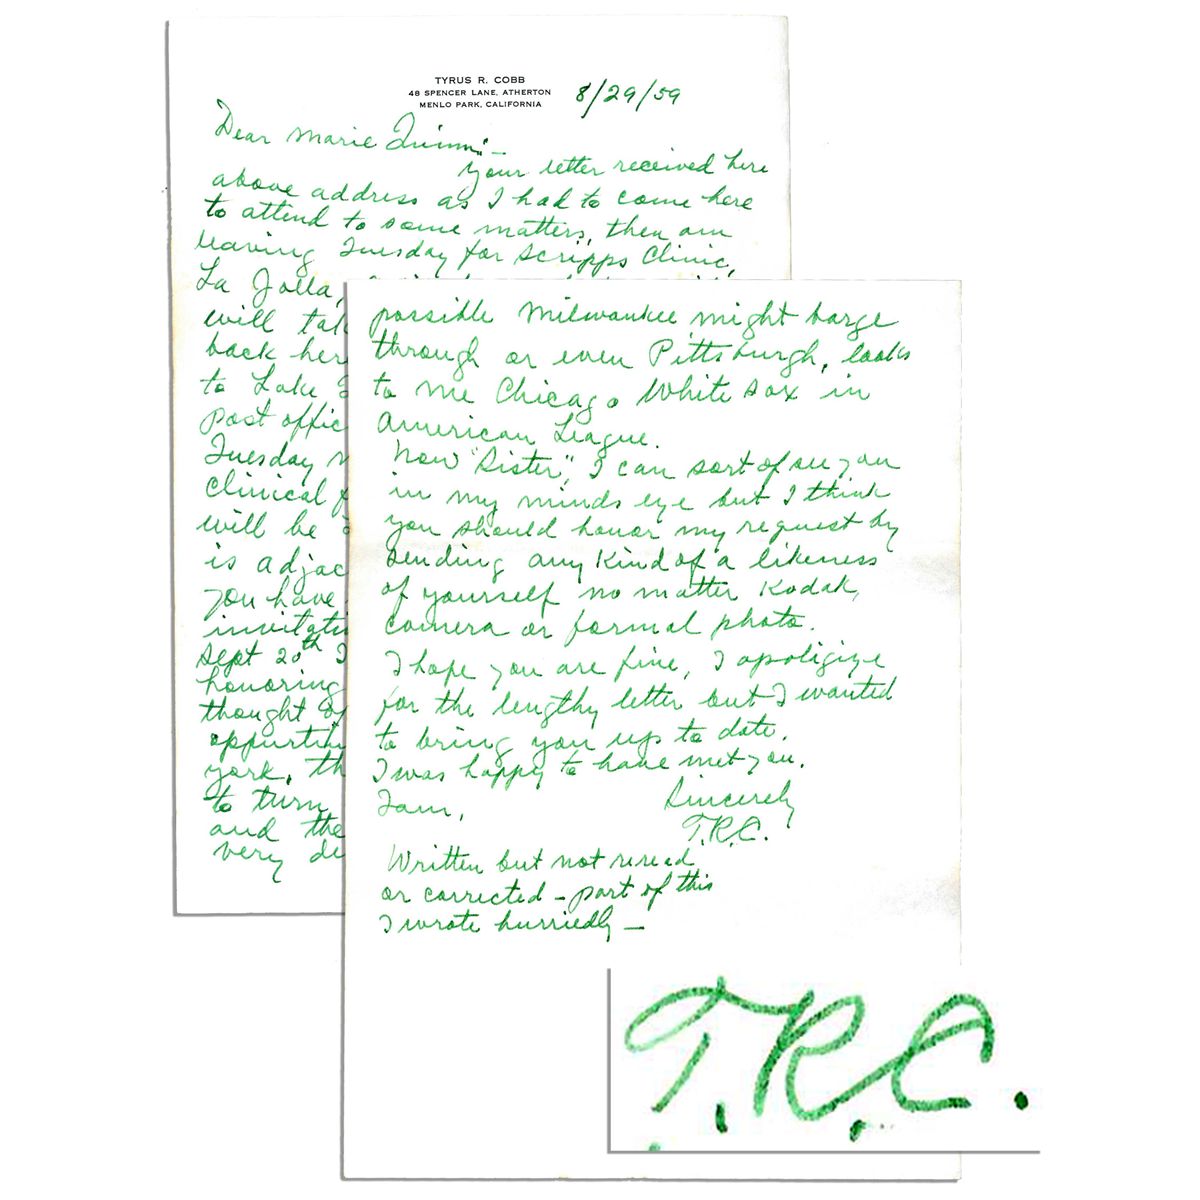 TYRUS R. COBB
48 SPENCER LANE, ATHERTON
MENLO PARK, CALIFORNIA
8/29/59
Dear Marie
your letter received here
above address as I had to come here
to attend to some matters, then am
leaving Tuesday for Scripps Clinic,
La Jolla,
will
back
to Lake
Post
Tuesday
clinical
will be
is
you have
Sept 20th I
honoring
thought
york,
to turn
and the
very
possible Milwaukee might barge
through or even Pittsburgh, looks
to me Chicago White Sox in
American League.
Now "Sister", I can sort of see you
in my minds eye but I think
you should honor my request by
sending any kind of a likeness
of yourself no matter Kodak,
camera or formal photo.
I hope you are fine, I apoligize
for the lengthy letter but I wanted
to bring you up to date.
I was happy to have met you.
I am,
Sincerely
T.R.C.
Written but not reread
or corrected – part of this
I wrote hurriedly –
T.R.C.